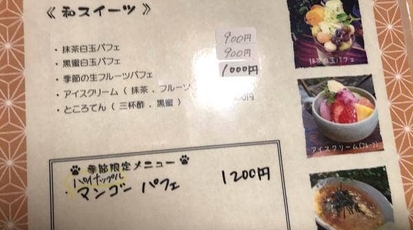 《 和スイーツ 》
・抹茶白玉パフェ 900円
・黒蜜白玉パフェ 900円
・季節の生フルーツパフェ 1000円
・アイスクリーム ( 抹茶 . フルーツ
・ところてん ( 三杯酢 . 黒蜜 )
抹茶白玉パフェ
アイスクリーム(フルーツ)
季節限定メニュー
パイナップル
・マンゴー パフェ 1200円